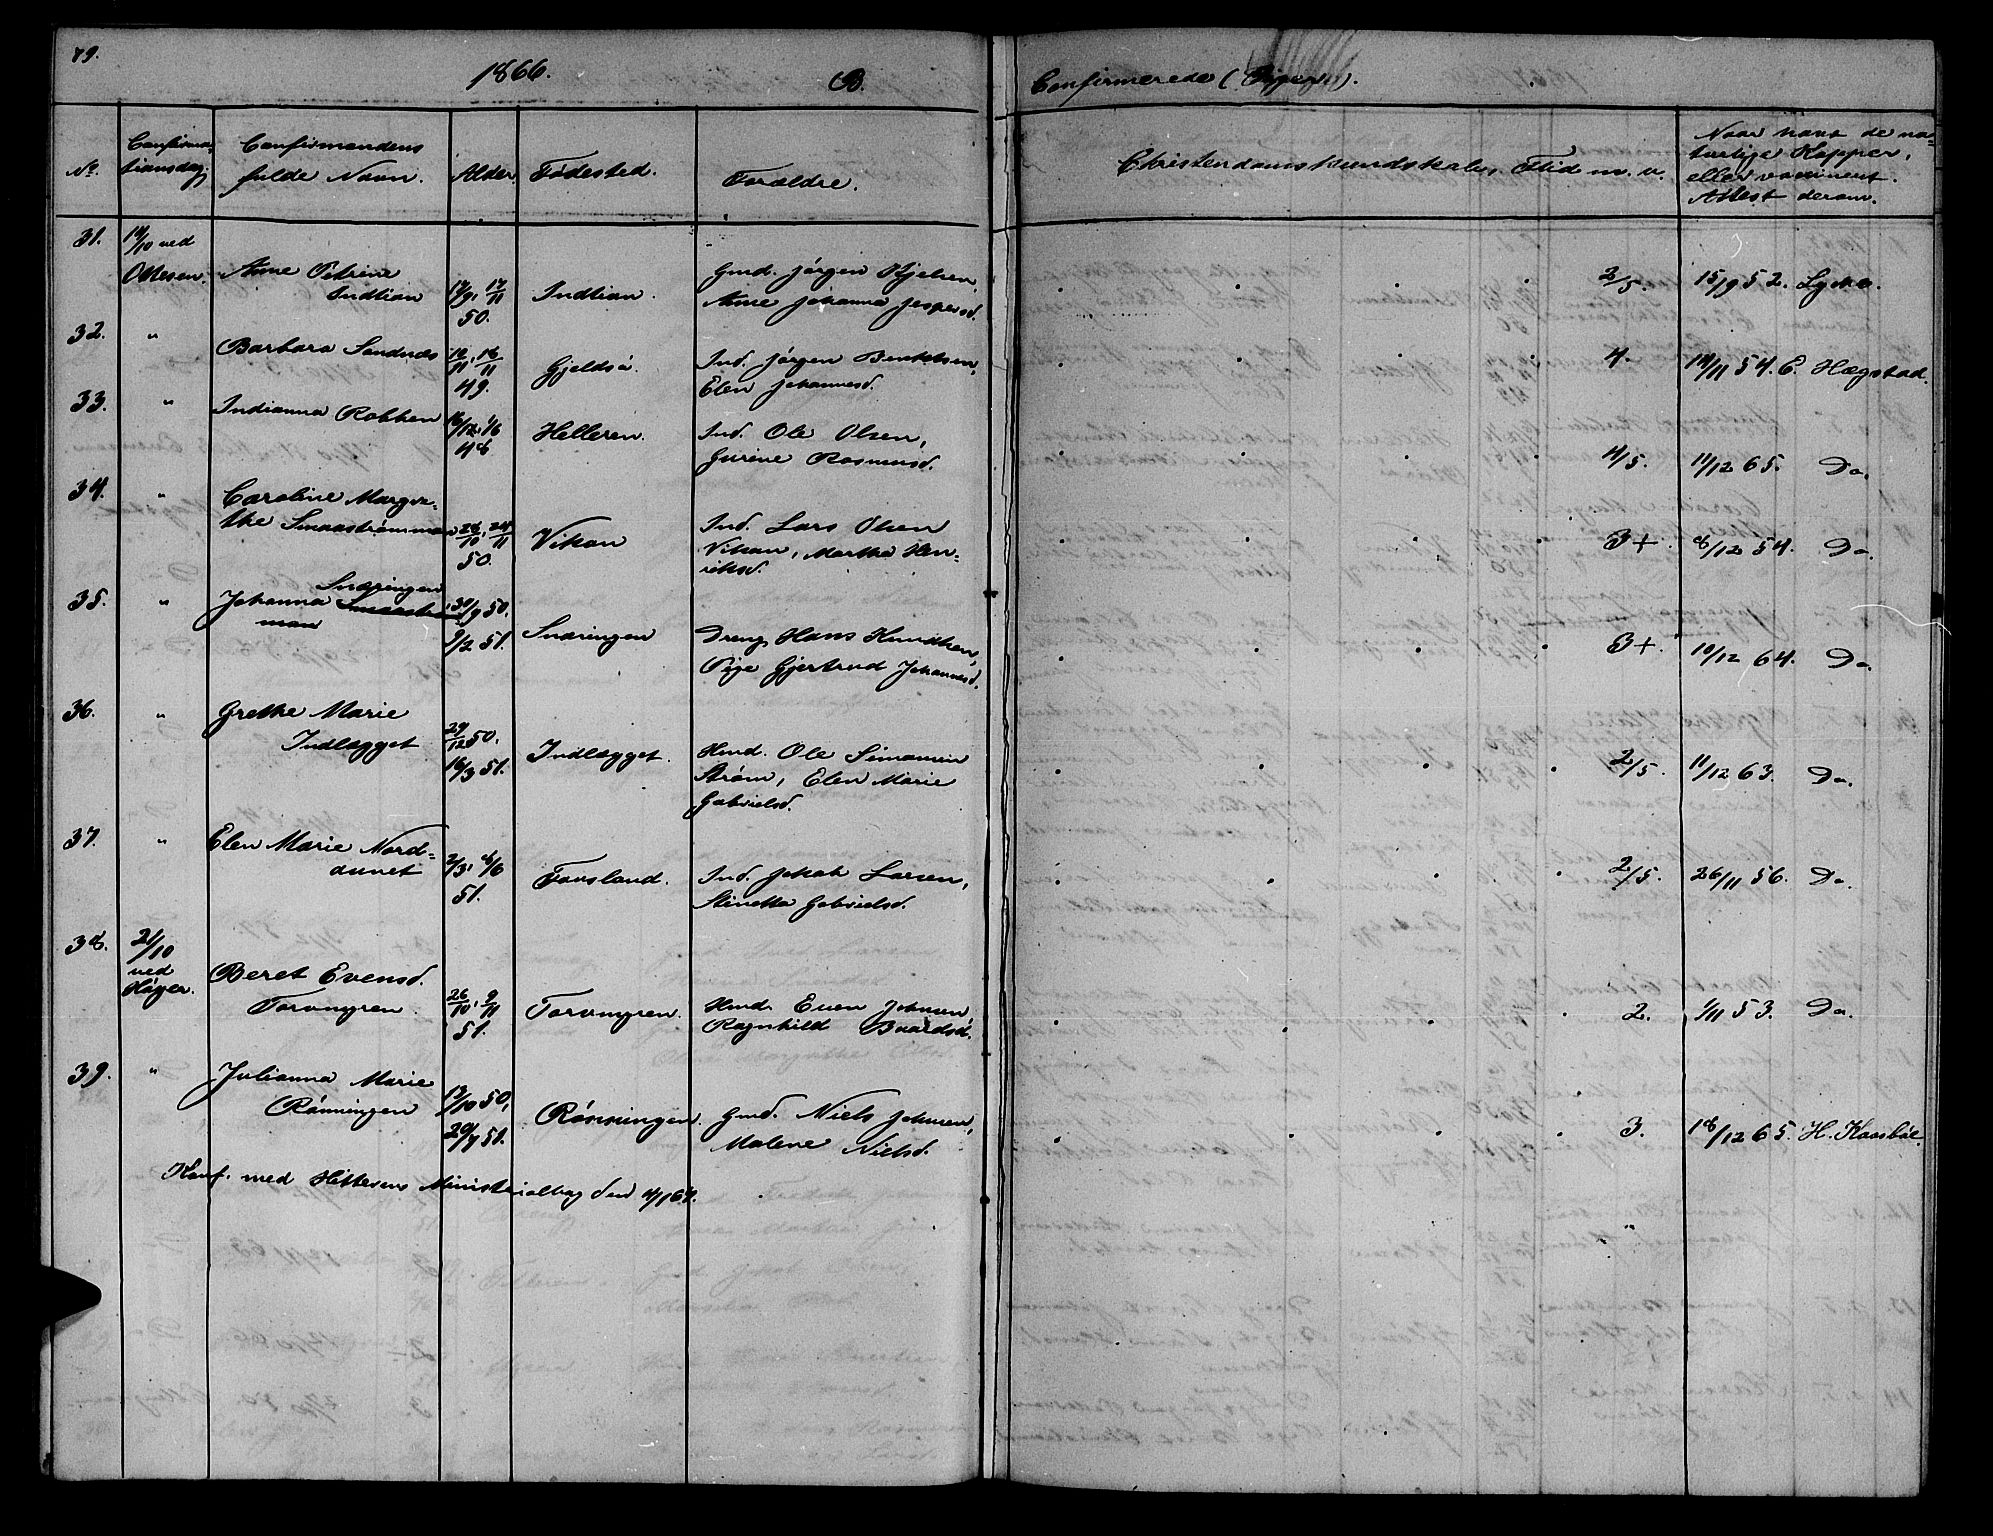 79.
1866.
B.
Confirmerede (Piger).
No.
Confirma-
tionsdag.
Confirmandens
fulde Navn.
Alder.
Fødested.
Forældre.
Christendomskundskaber, Flid m. v.
Naar havt de na-
turlige Kopper,
eller vaccineret.
Attest derom.
31.
14/10 ved
Ottesen.
Anne Petrine
Indtian
17/9, 17/11
50.
Indtian.
Gmd. Jørgen
Anne Johanna Jespersd.
2/5.
15/9 52. Lycke.
32.
"
Barbara Sandnæs
49.
Gjeldsö.
Ind. Jörgen Bentsen,
Elen Johannesd.
4.
14/11 54. E. Hægstad.
33.
"
Indianna Rokken
16/12, 1/6
48
Helleren.
Ind. Ole Olsen,
Gurine Rasmusd.
4/5.
11/12 65. Do.
34.
"
Caroline Margre-
the Smaastrømmen
26/10, 24/11
50.
Vikan
Ind. Lars Olsen
Vikan, Martha Hen-
riksd.
3+.
8/12 54. Do.
35.
"
Snæringen
Johanna Smaastrøm
man
30/9 50.
9/2 51.
Snæringen
Dreng Hans Knudsen,
Pige Gjertrud Johannesd.
3+.
10/12 64. Do.
36.
"
Grethe Marie
Indlægget
29/12 50.
16/3 51.
Indlægget.
Hmd. Ole Simonsen
Strøm, Elen Marie
Gabrielsd.
2/5.
11/12 63. Do.
37.
"
Elen Marie Nord-
2/3, 8/6
51.
Favsland.
Ind. Jakob Larsen,
Stinetta Gabrielsd.
2/5.
26/11 56. Do.
38.
21/10
ved
Høyer.
Beret Evensd.
Torvmyren.
26/10, 9/11
51.
Torvmyren.
Hmd. Even Johnsen,
Ragnhild Baardsd.
2.
1/11 53. Do.
39.
"
Julianna Marie
Rønningen
17/10 50,
20/7 51.
Rønningen.
Gmd. Niels Johnsen,
Malene Nielsd.
3.
18/12 65. H. Kaasböl.
Konf. med Hitterens Ministerialbog den 4/1 67.